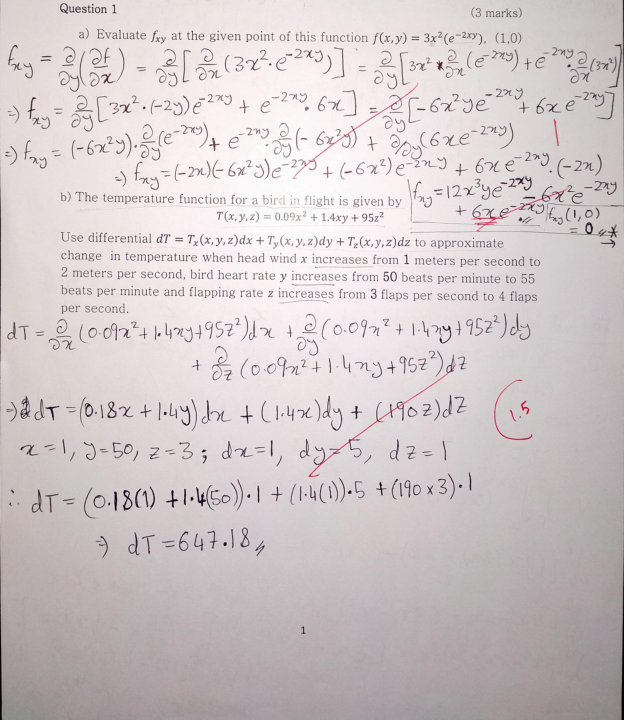 Question 1 (3 marks)
a) Evaluate fxy at the given point of this function f(x,y) = 3x²(e^-2xy), (1,0)
fxy = ∂/∂y(∂f/∂x) = ∂/∂y[∂/∂x(3x²·e^-2xy)] = ∂/∂y[3x²·∂/∂x(e^-2xy) + e^-2xy·∂/∂x(3x²)]
⇒ fxy = ∂/∂y[3x²·(-2y)e^-2xy + e^-2xy·6x] = ∂/∂y[-6x²ye^-2xy + 6xe^-2xy]
1
⇒ fxy = (-6x²y)·∂/∂y(e^-2xy) + e^-2xy·∂/∂y(-6x²y) + ∂/∂y(6xe^-2xy)
⇒ fxy = (-2x)(-6x²y)e^-2xy + (-6x²)e^-2xy + 6xe^-2xy·(-2x)
fxy = 12x³ye^-2xy - 6x²e^-2xy
+ 6xe^-2xy
fxy(1,0)
= 0
b) The temperature function for a bird in flight is given by
T(x,y,z) = 0.09x² + 1.4xy + 95z²
Use differential dT = Tx(x,y,z)dx + Ty(x,y,z)dy + Tz(x,y,z)dz to approximate
change in temperature when head wind x increases from 1 meters per second to
2 meters per second, bird heart rate y increases from 50 beats per minute to 55
beats per minute and flapping rate z increases from 3 flaps per second to 4 flaps
per second.
dT = ∂/∂x(0.09x²+1.4xy+95z²)dx + ∂/∂y(0.09x²+1.4xy+95z²)dy
+ ∂/∂z(0.09x²+1.4xy+95z²)dz
⇒ dT = (0.18x + 1.4y)dx + (1.4x)dy + (190z)dz
1.5
x=1, y=50, z=3; dx=1, dy=5, dz=1
∴ dT = (0.18(1) + 1.4(50))·1 + (1.4(1))·5 + (190×3)·1
⇒ dT = 647.18
1